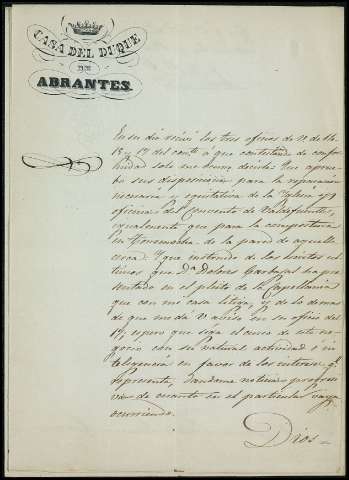 CASA DEL DUQUE
DE
ABRANTES.
En su dia recibí los tres oficios de V. de
13 y 17 del corr.te á que contestando de confor-
midad solo me ocurre decirle: Que aprue-
bo sus disposiciones para la reparacion
necesaria y equitativa de la Iglesia y
oficinas del Convento de Valdefuentes,
igualmente que para la compostura
en Torremocha de la pared de aquella
cerca. Y que enterado de los escritos
que D.a Dolores Carbajal ha pre-
sentado en el pleito de la Capellania
que con mi casa litiga, y de lo demas
de que me dá V. aviso en su oficio del
17, espero que siga el curso de este ne-
gocio con su natural actividad é in-
teligencia en favor de los intereses q.e
representa, dandome noticias progresi-
vas de cuanto en el particular vaya
ocurriendo.
Dios